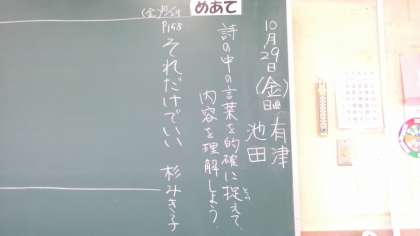 10月29日(金)
日直 有津
池田
めあて
詩の中の言葉を的確に捉えて、
内容を理解しよう。
P158
それだけでいい 杉みき子